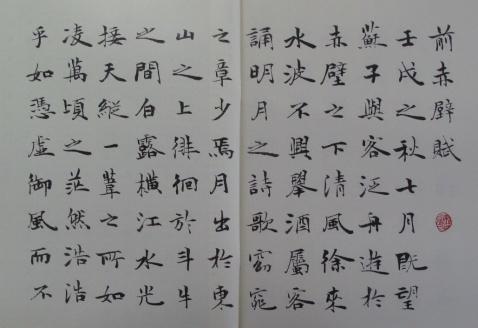 前赤壁賦
壬戌之秋七月既望
蘇子與客泛舟遊於
赤壁之下清風徐來
水波不興舉酒屬客
誦明月之詩歌窈窕
之章少焉月出於東
山之上徘徊於斗牛
之間白露橫江水光
接天縱一葦之所如
凌萬頃之茫然浩浩
乎如憑虛御風而不